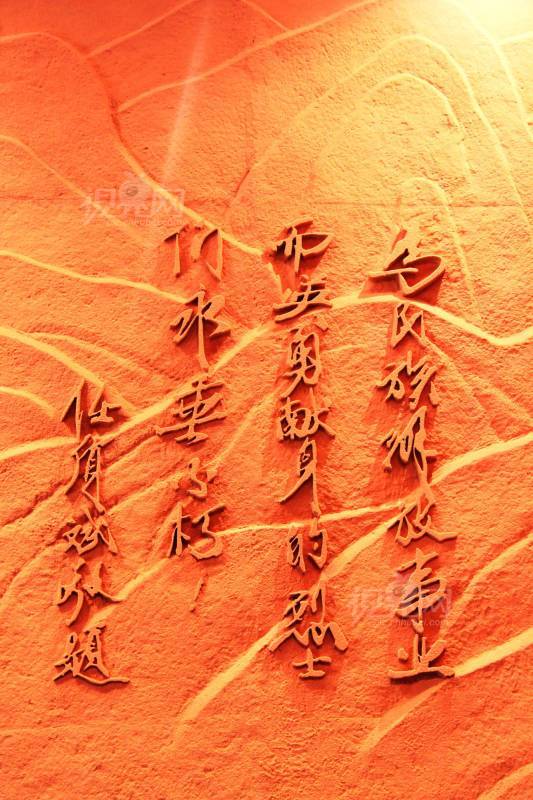 为民族解放事业
而英勇献身的烈士
们永垂不朽！
任质斌敬题